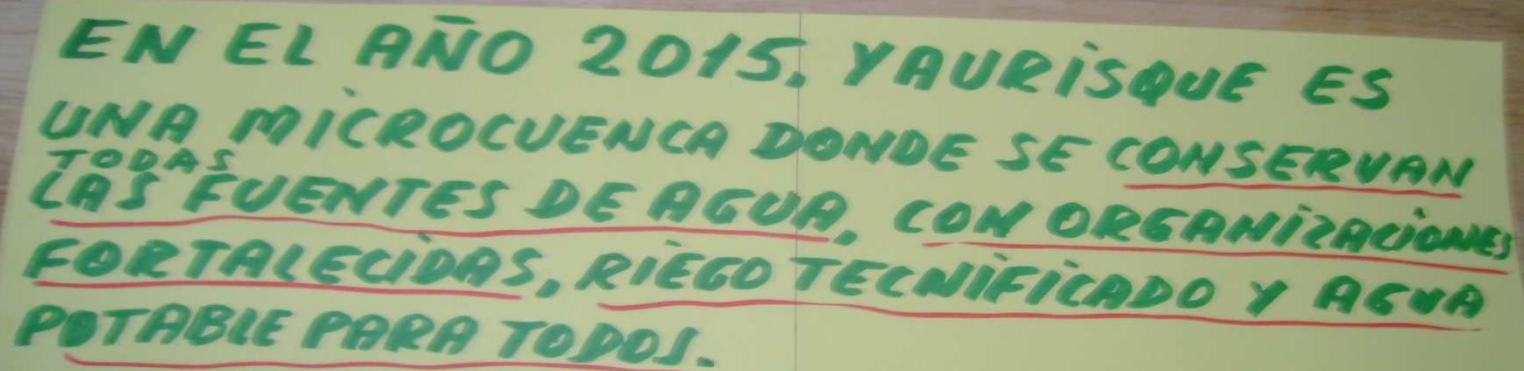 EN EL AÑO 2015. YAURISQUE ES
UNA MICROCUENCA DONDE SE CONSERVAN
TODAS
LAS FUENTES DE AGUA, CON ORGANIZACIONES
FORTALECIDAS, RIEGO TECNIFICADO Y AGUA
POTABLE PARA TODOS.